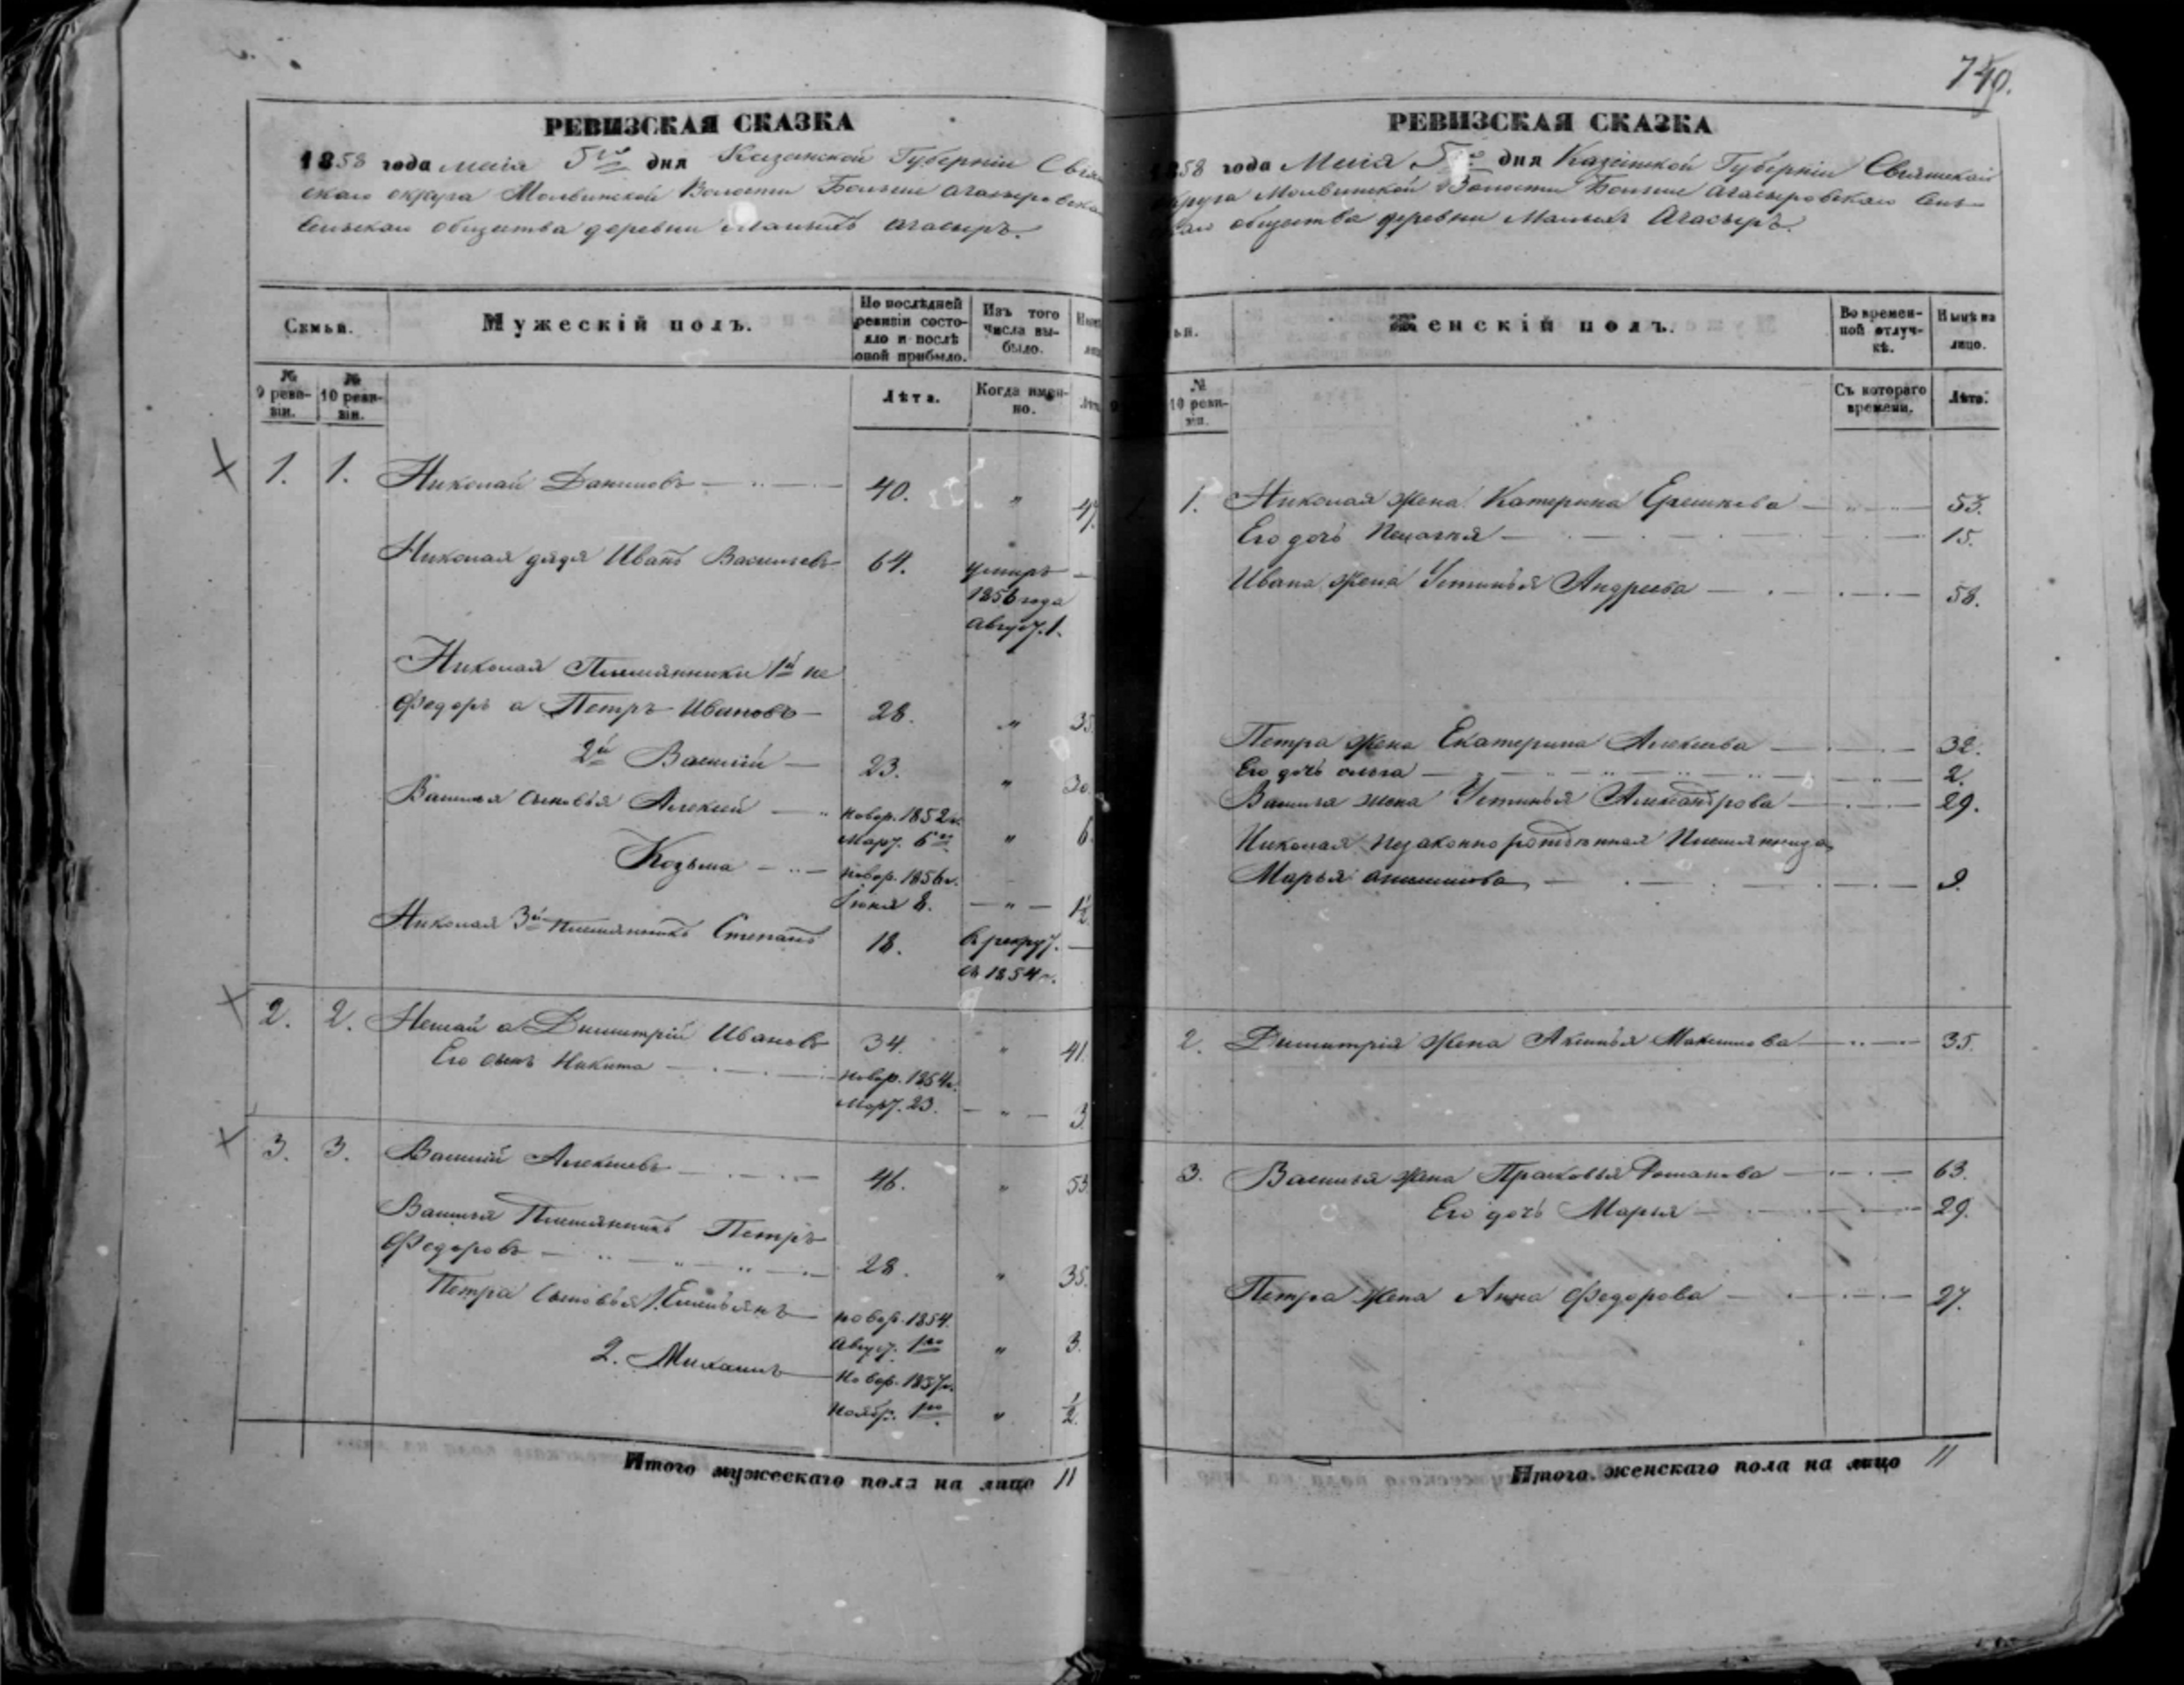 740.
РЕВИЗСКАЯ СКАЗКА
1858 года маiя 5го дня Казанской Губернiи Свiя
скаго округа Молвинской Волости Больше Агасыровска
Сельскаго общества деревни Малыхъ Агасыръ.
Семьи.
Мужескiй полъ.
По послѣдней ревизiи состояло и послѣ оной прибыло.
Изъ того числа выбыло.
№ 9 ревизiи.
№ 10 ревизiи.
Лѣта.
Когда именно.
1. 1. Николай Даниловъ 40. " 47.
Николая дядя Иванъ Васильевъ 64. умиръ —
1856 года
Август. 1.
Николая Племянники 1й не
Федоръ а Петръ Ивановъ 28. " 35.
2й Василiй 23. " 30.
Василья сыновья Алексей новор. 1852 г.
Март. 6го " 6.
Козьма новор. 1856 г.
Iюня 8. " 1½
Николая 3й племянникъ Степанъ 18. в рекрут. —
съ 1854 г.
2. 2. а Димитрiй Ивановъ 34. " 41.
Его сынъ Никита новор. 1854 г.
Март. 23. " 3.
3. 3. Василiй Алексеевъ 46. " 53.
Василья Племянникъ Петръ
Федоровъ 28. " 35.
Петра Сыновья 1. Емельянъ новор. 1854.
Август. 1го " 3.
2. Михаилъ новор. 1857 г.
Ноябр. 1го " ½.
Итого мужескаго пола на лицо 11
РЕВИЗСКАЯ СКАЗКА
1858 года Маiя 5го дня Казанской Губернiи Свiяжскаго
округа Молвинской Волости Больше Агасыровскаго Сель
скаго общества деревни Малыхъ Агасыръ.
Женскiй полъ.
Во временной отлучкѣ.
Нынѣ на лицо.
№ 10 ревизiи.
Съ котораго времени.
Лѣта.
1. Николая жена Катерина 53.
Его дочь Пелагея 15.
Ивана жена Устинья Андреева 58.
Петра жена Екатерина Алексеева 32.
Его дочь Ольга 2.
Василья жена Устинья Александрова 29.
Николая незаконно рожденная Племянница
Марья 9.
2. Димитрiя жена Аксинья Максимова 35.
3. Василья жена Прасковья Романова 63.
Его дочь Марья 29.
Петра жена Анна Федорова 27.
Итого женскаго пола на лицо 11